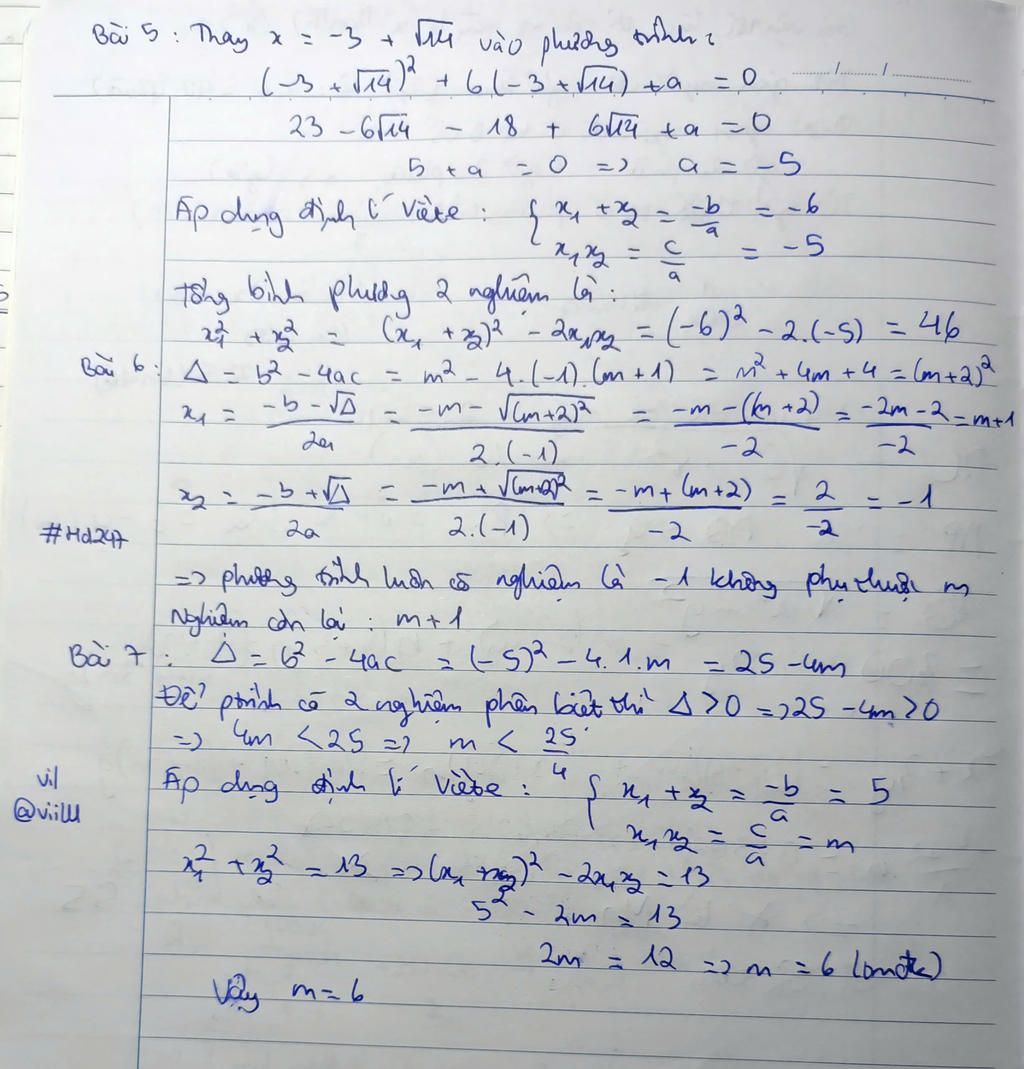 Bài 5 : Thay x = -3 + √14 vào phương trình :
(-3 + √14)² + 6(-3 + √14) + a = 0
23 - 6√14 - 18 + 6√14 + a = 0
5 + a = 0 => a = -5
Áp dụng định lí Viète : { x₁ + x₂ = -b/a = -6
x₁x₂ = c/a = -5
Tổng bình phương 2 nghiệm là :
x₁² + x₂² = (x₁ + x₂)² - 2x₁x₂ = (-6)² - 2.(-5) = 46
Bài 6 : Δ = b² - 4ac = m² - 4.(-1).(m + 1) = m² + 4m + 4 = (m+2)²
x₁ = (-b - √Δ)/2a = (-m - √(m+2)²)/2.(-1) = (-m - (m+2))/-2 = (-2m - 2)/-2 = m+1
x₂ = (-b + √Δ)/2a = (-m + √(m+2)²)/2.(-1) = (-m + (m+2))/-2 = 2/-2 = -1
#Hd247
=> phương trình luôn có nghiệm là -1 không phụ thuộc m
Nghiệm còn lại : m+1
Bài 7 : Δ = b² - 4ac = (-5)² - 4.1.m = 25 - 4m
Để ptrình có 2 nghiệm phân biệt thì Δ > 0 => 25 - 4m > 0
=> 4m < 25 => m < 25/4
vil
@viilll
Áp dụng định lí Viète : { x₁ + x₂ = -b/a = 5
x₁x₂ = c/a = m
x₁² + x₂² = 13 => (x₁ + x₂)² - 2x₁x₂ = 13
5² - 2m = 13
2m = 12 => m = 6
Vậy m = 6